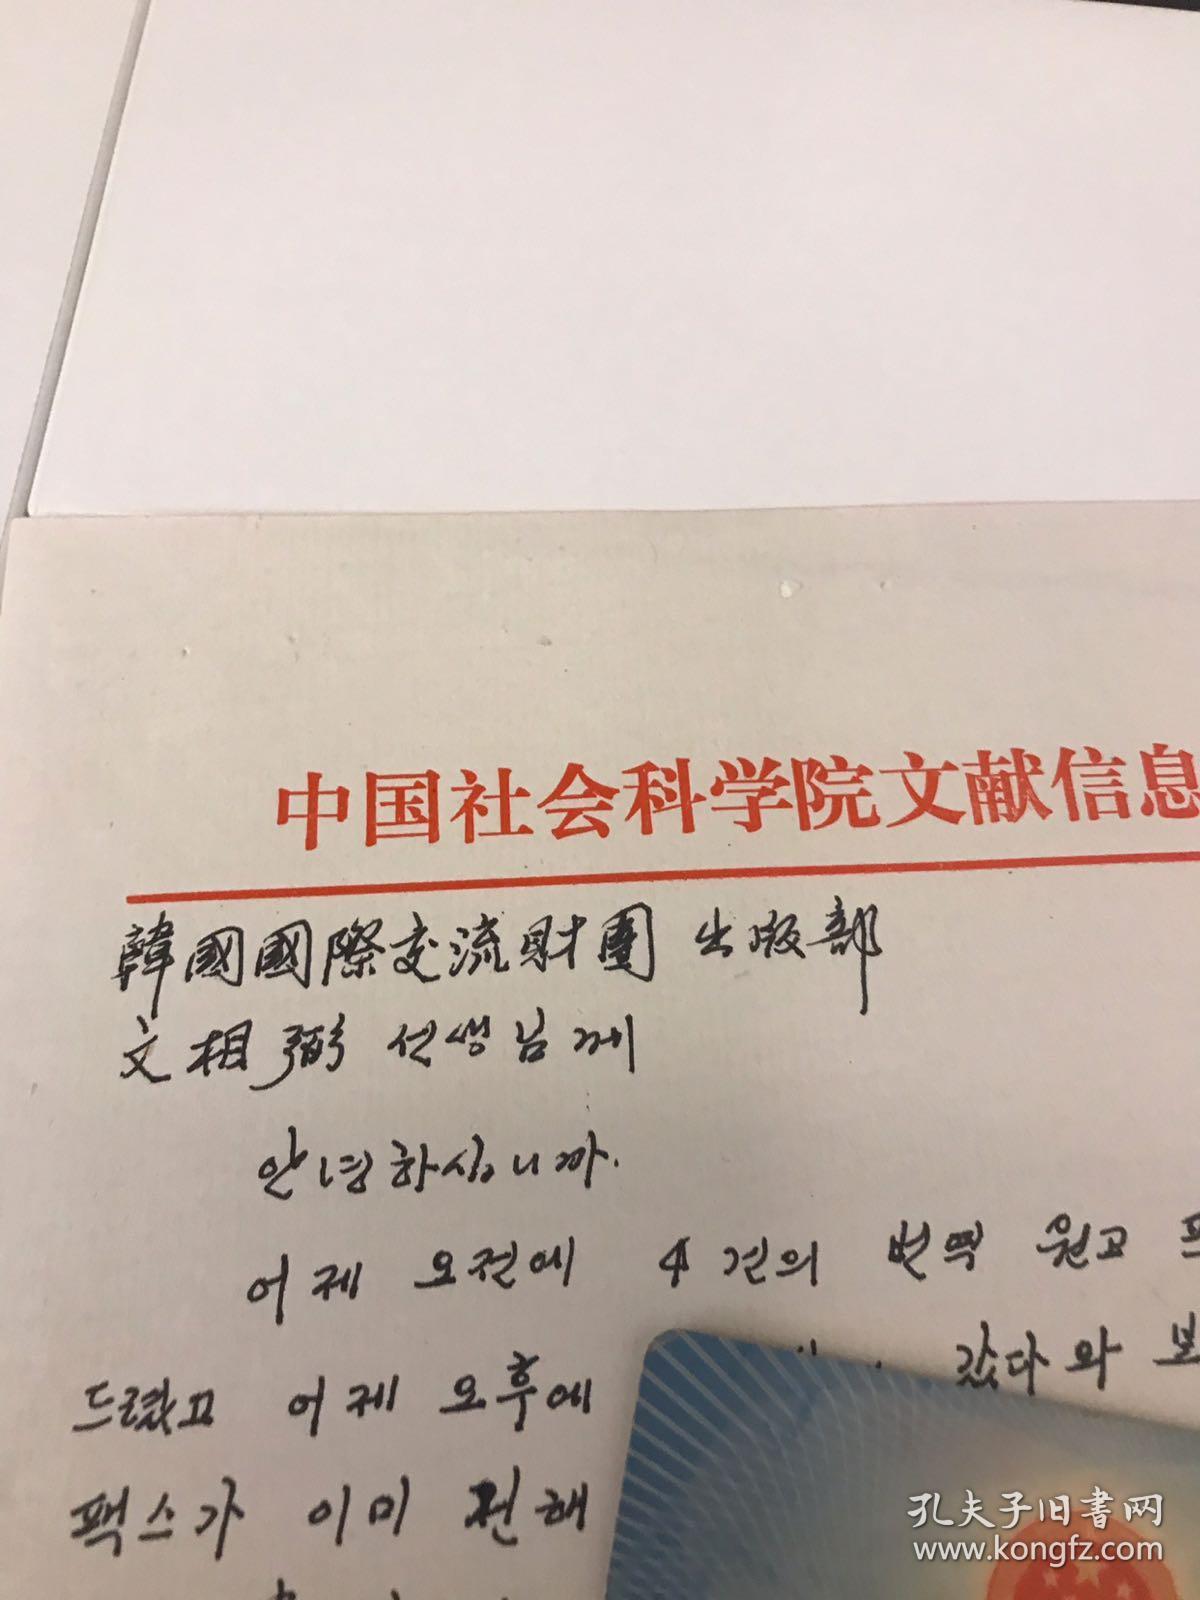 中国社会科学院文献信息
韓國國際交流財團 出版部
文相弼 선생님께
안녕하십니까.
어제 오전에 4건의 번역 원고 프
드렸고 어제 오후에 갔다와 보
팩스가 이미 전해
孔夫子旧书网
www.kongfz.com